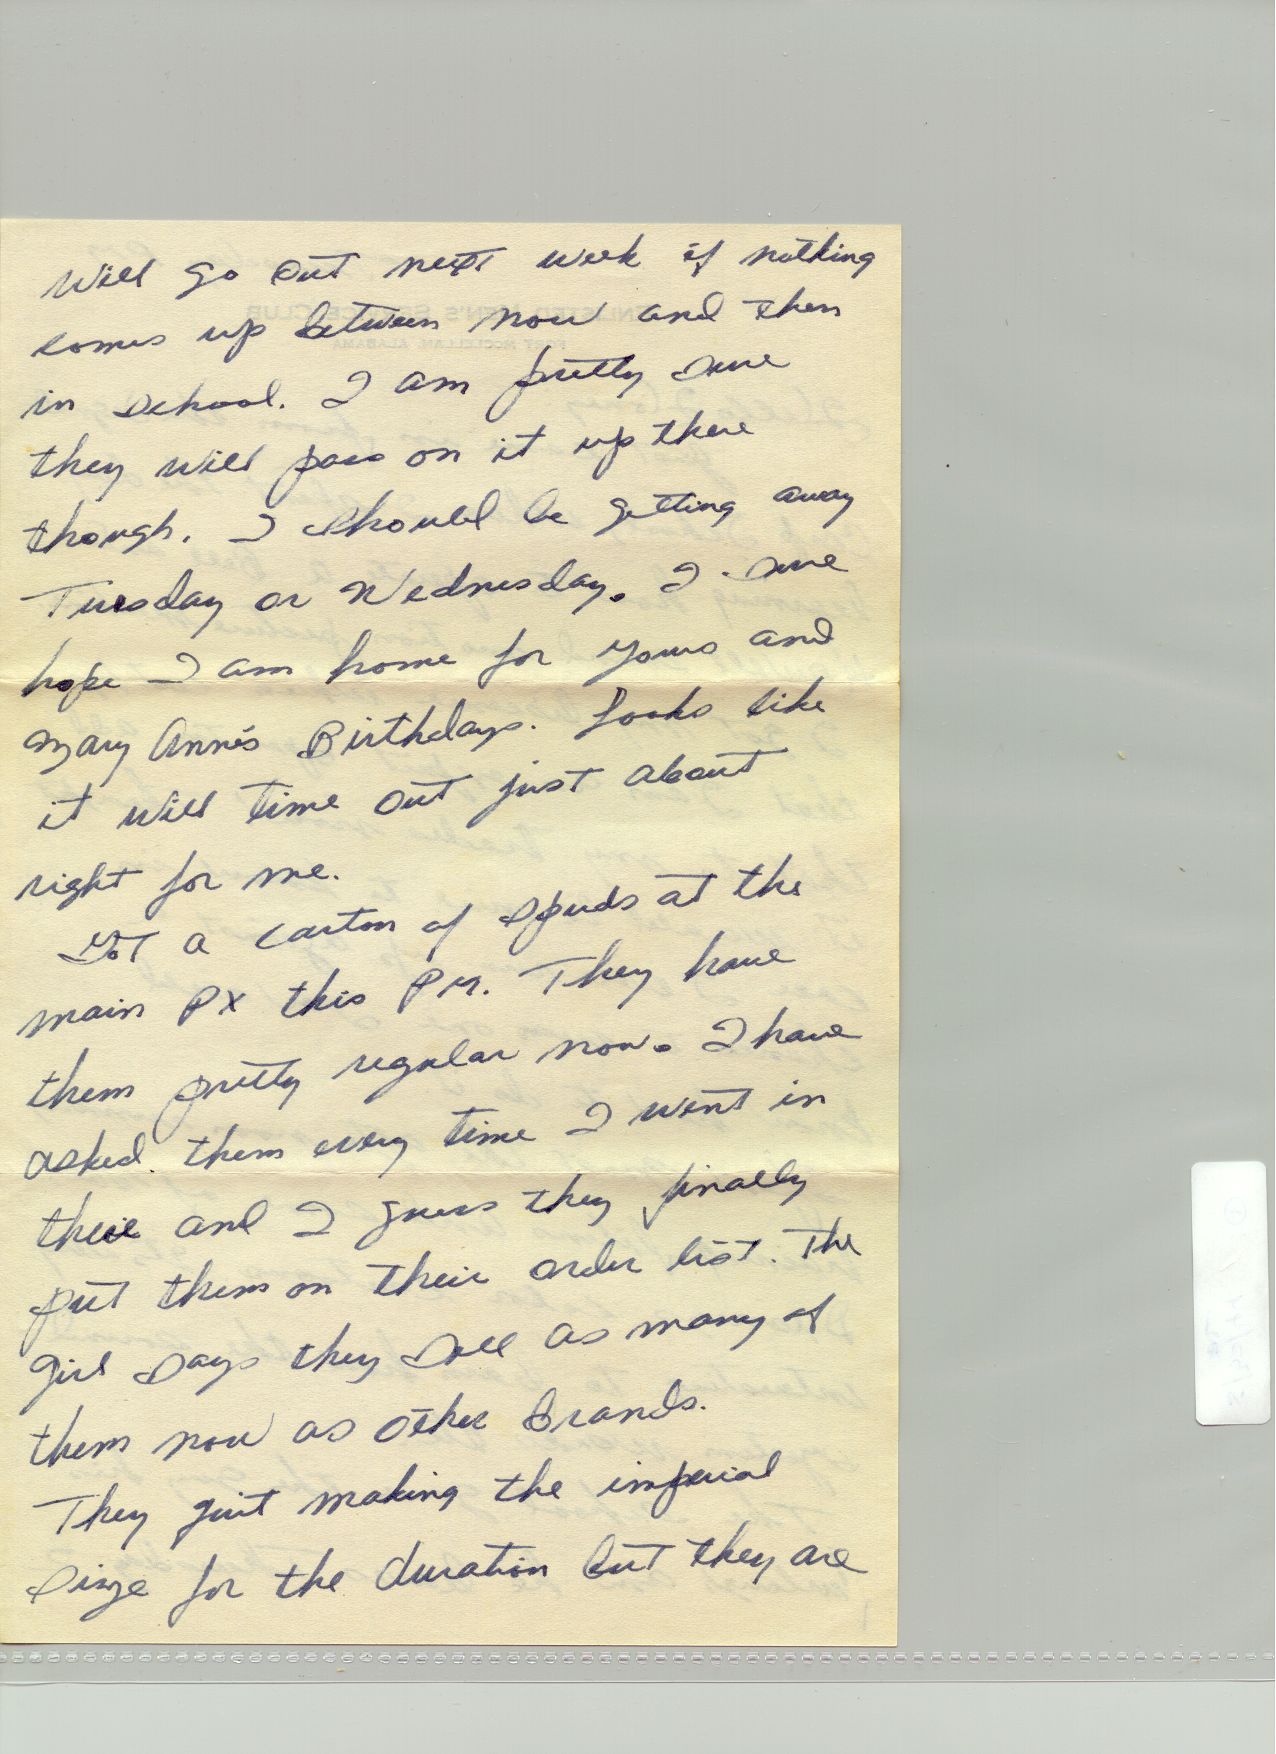 will go out next week if nothing
comes up between now and then
in school. I am pretty sure
they will pass on it up there
though. I should be getting away
Tuesday or Wednesday. I sure
hope I am home for yours and
Mary Ann's Birthdays. Looks like
it will time out just about
right for me.
Got a carton of Spuds at the
main PX this PM. They have
them pretty regular now. I have
asked them every time I went in
there and I guess they finally
put them on their order list. The
girl says they sell as many of
them now as other brands.
They quit making the imperial
size for the duration but they are